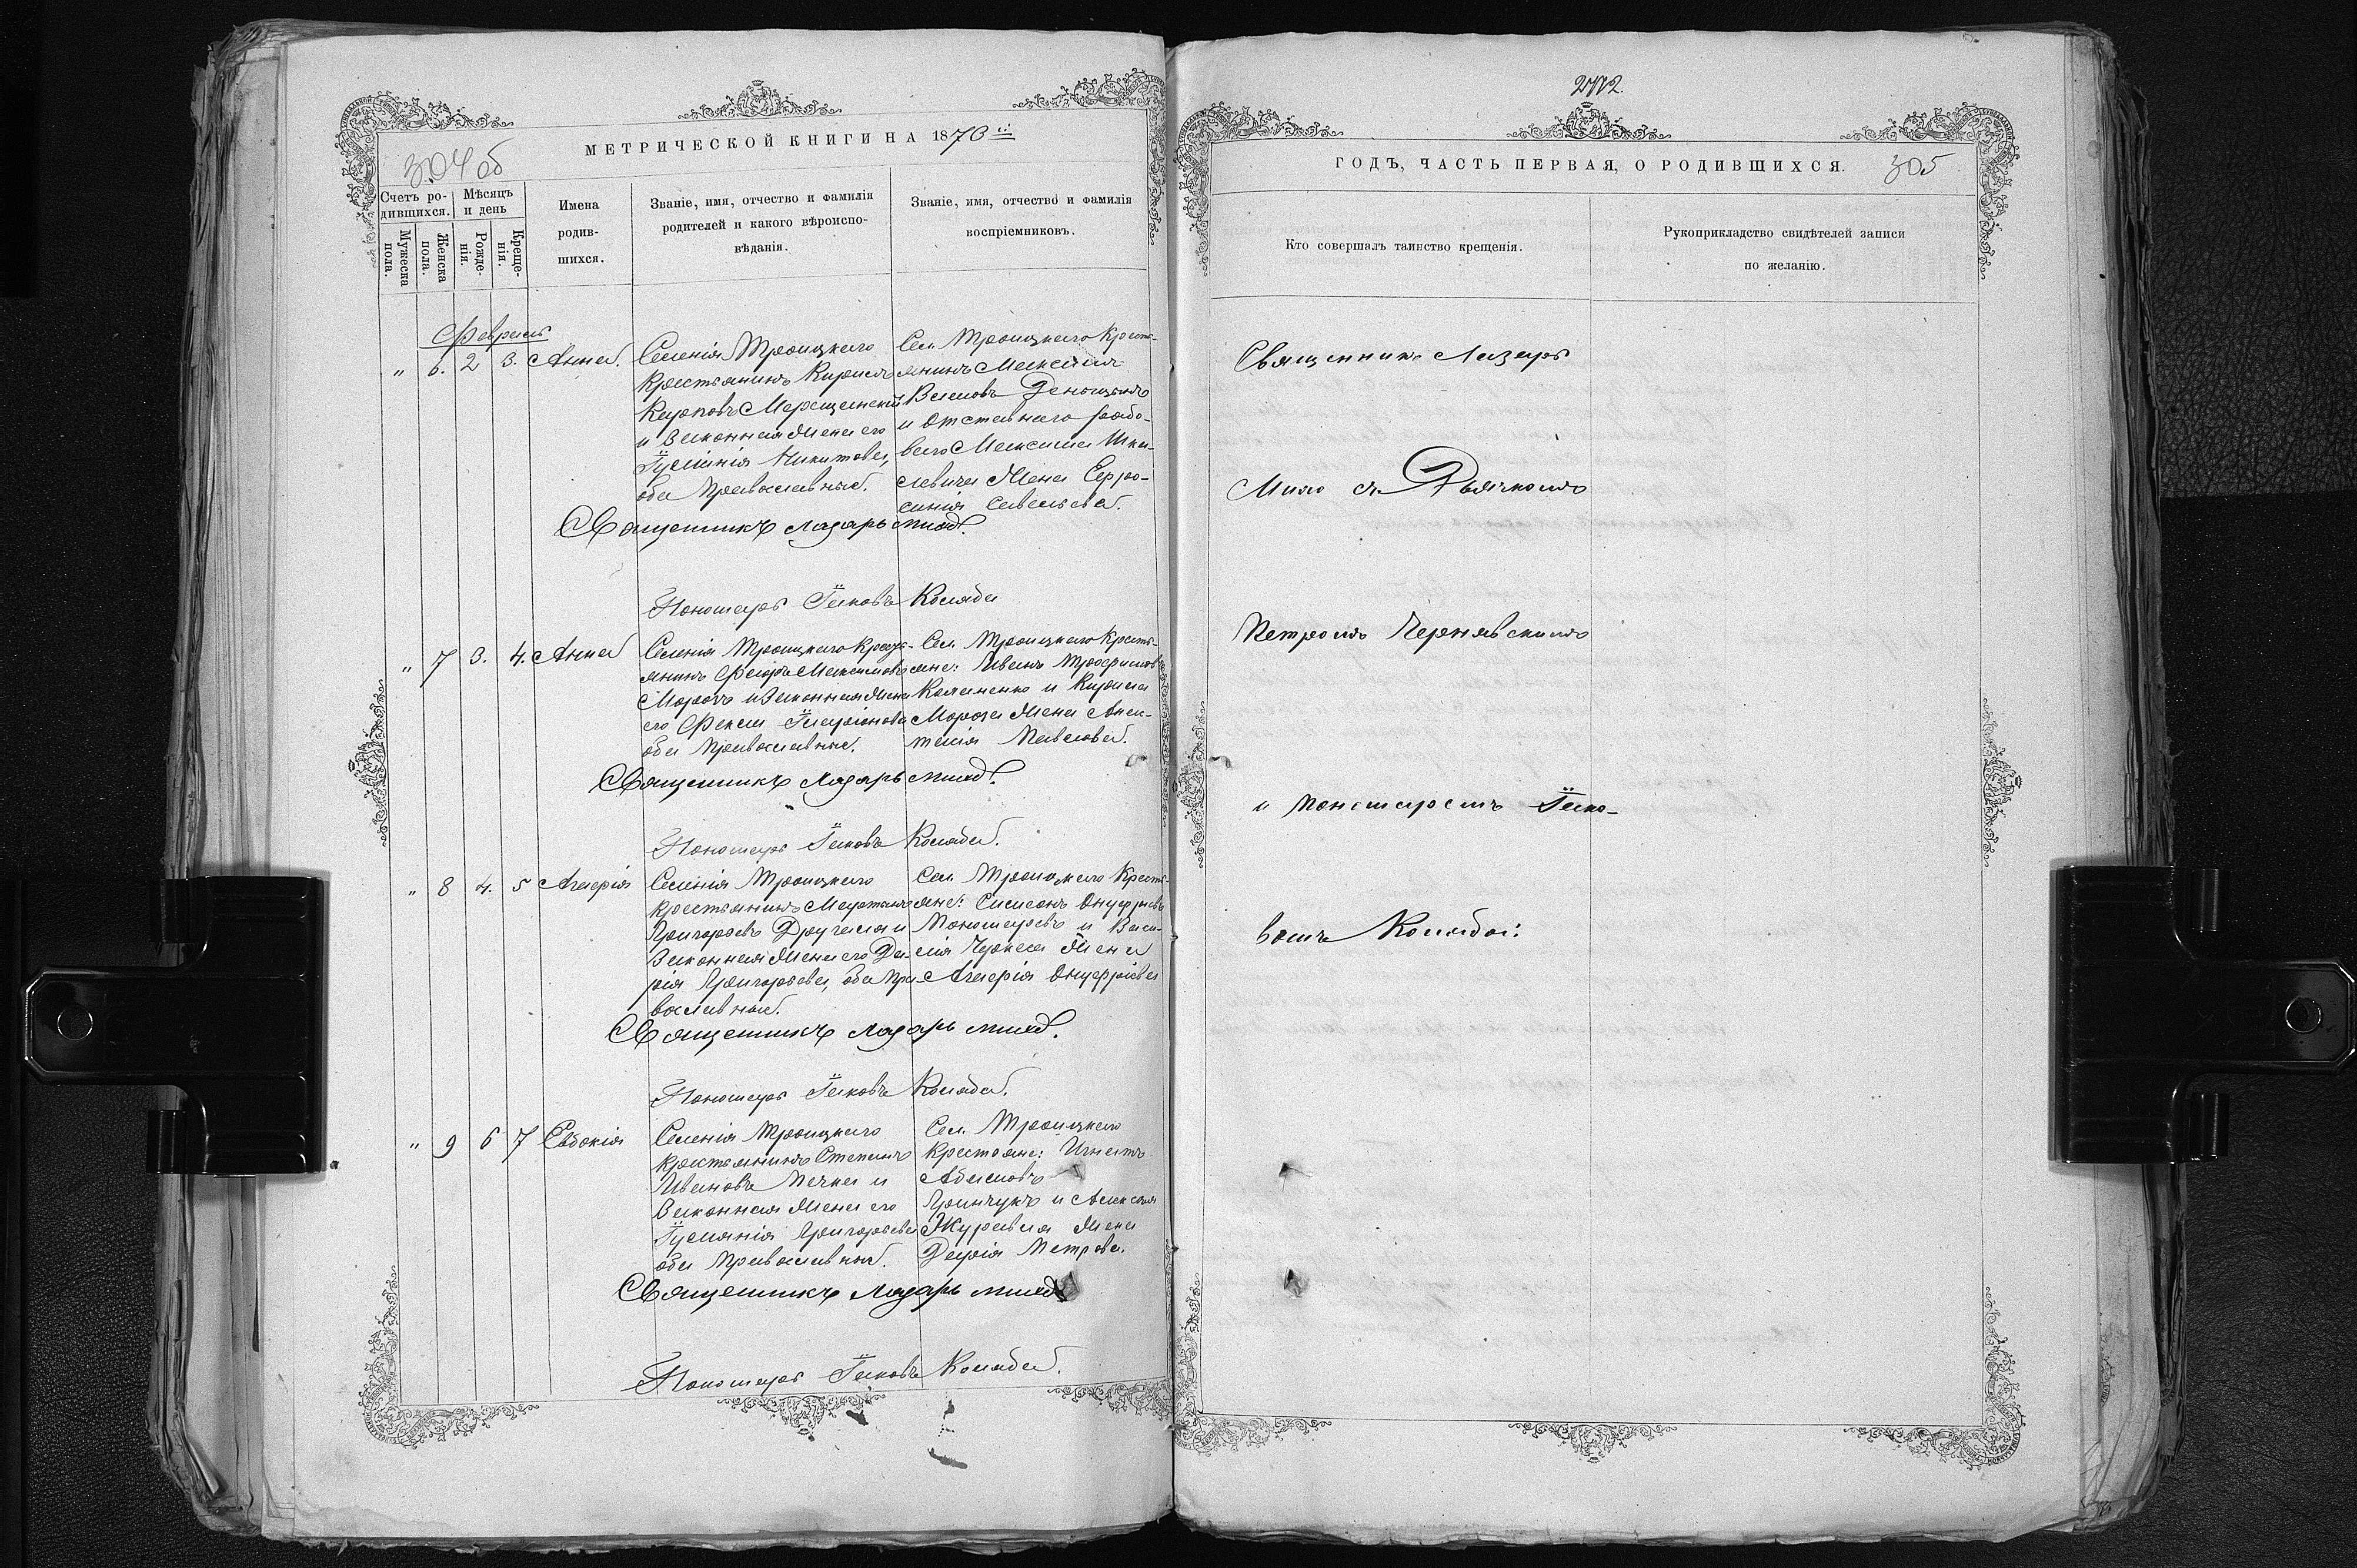 304 об
МЕТРИЧЕСКОЙ КНИГИ НА 1870й
Счетъ ро-
дившихся.
Мѣсяцъ
и день
Мужеска
пола.
Женска
пола.
Рожде-
нія.
Креще-
нія.
Имена
родив-
шихся.
Званіе, имя, отчество и фамилія
родителей и какого вѣроиспо-
вѣданія.
Званіе, имя, отчество и фамилія
воспріемниковъ.
Февраль
" 6. 2 3. Анна.
Селенія Троицкаго
крестьянинъ Кирилъ
Карповъ
и законная жена его
Никитова,
оба православные.
Сел. Троицкаго крестья-
янинъ
Власовъ
и отставнаго рядо-
ваго Максима
жена Евфро-
синія Савельева.
Священникъ Лазарь
Пономарь Іаковъ Коляда
" 7 3. 4. Анна
Селенія Троицкаго кресть-
янинъ Феодоръ Максимовъ
Морозъ и законная жена
его Фекла Иларіонова
оба православные.
Сел. Троицкаго кресть-
яне: Иванъ Трофимовъ
Калиненко и Кирила
Мороза жена Анас-
тасія Павлова.
Священникъ Лазарь
Пономарь Іаковъ Коляда.
" 8 4. 5 Агафія
Селенія Троицкаго
крестьянинъ Мартинъ
Григорьевъ и
законная жена его Да-
рія Григорьева, оба пра-
вославные.
Сел. Троицкаго кресть-
яне: Симеонъ Онуфріевъ
Пономаревъ и Васи-
лія жена
Агафія Онуфріева
Священникъ Лазарь
Пономарь Іаковъ Коляда.
" 9 6 7 Евдокія
Селенія Троицкаго
крестьянинъ Степанъ
Ивановъ и
законная жена его
Іуліанія Григорьева
оба православные.
Сел. Троицкаго
крестьяне: Игнатъ
Гринчукъ и Алексея
Журавля жена
Дарія Петрова.
Священникъ Лазарь
Пономарь Іаковъ Коляда.
ГОДЪ, ЧАСТЬ ПЕРВАЯ, О РОДИВШИХСЯ.
305
Кто совершалъ таинство крещенія.
Рукоприкладство свидѣтелей записи
по желанію.
Священникъ Лазарь
съ Дьячкомъ
Петромъ Чернявскимъ
и пономаремъ Іако-
вомъ Колядой.